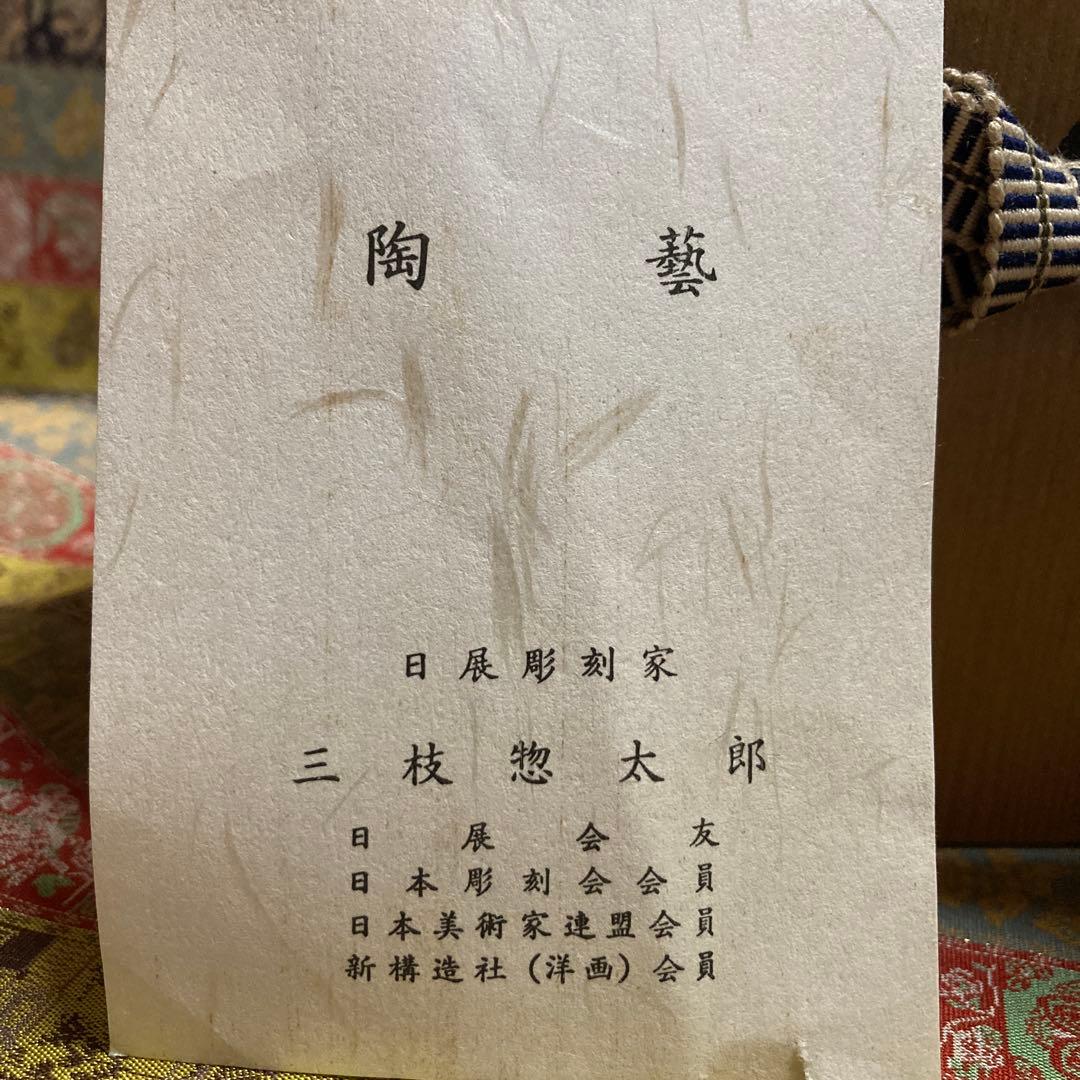 陶藝
日展彫刻家
三枝惣太郎
日展会友
日本彫刻会会員
日本美術家連盟会員
新構造社（洋画）会員